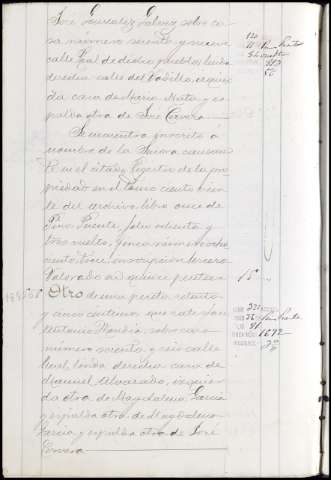 José Gonzalez Galvez sobre ca-
sa número sesenta y nueve
calle Real de dicho pueblo, linda
derecha calle del Padilla, izquier-
da casa de Mario Mata y es-
palda otra de José Cervera
Se encuentra inscrito a
nombre de la Señora causan-
te en el citado Registro de la pro-
piedad en el tomo ciento
del archivo libro once de
Pino Puente, folio ochenta y
tres vuelto, finca número ocho
cientos doce, inscripción tercera
Valorado en quince pesetas
15
Otro de una peseta setenta
y cinco centimos que satisface
Antonio sobre casa
número sesenta y seis calle
Real, linda derecha casa de
Manuel Alvarado, izquier-
da otra de Magdalena Garcia
y espalda otra de Magdalena
Garcia y espalda otra de José
Cervera
120
11 Pino Puente
813
221
36 Pino Puente
91
1672